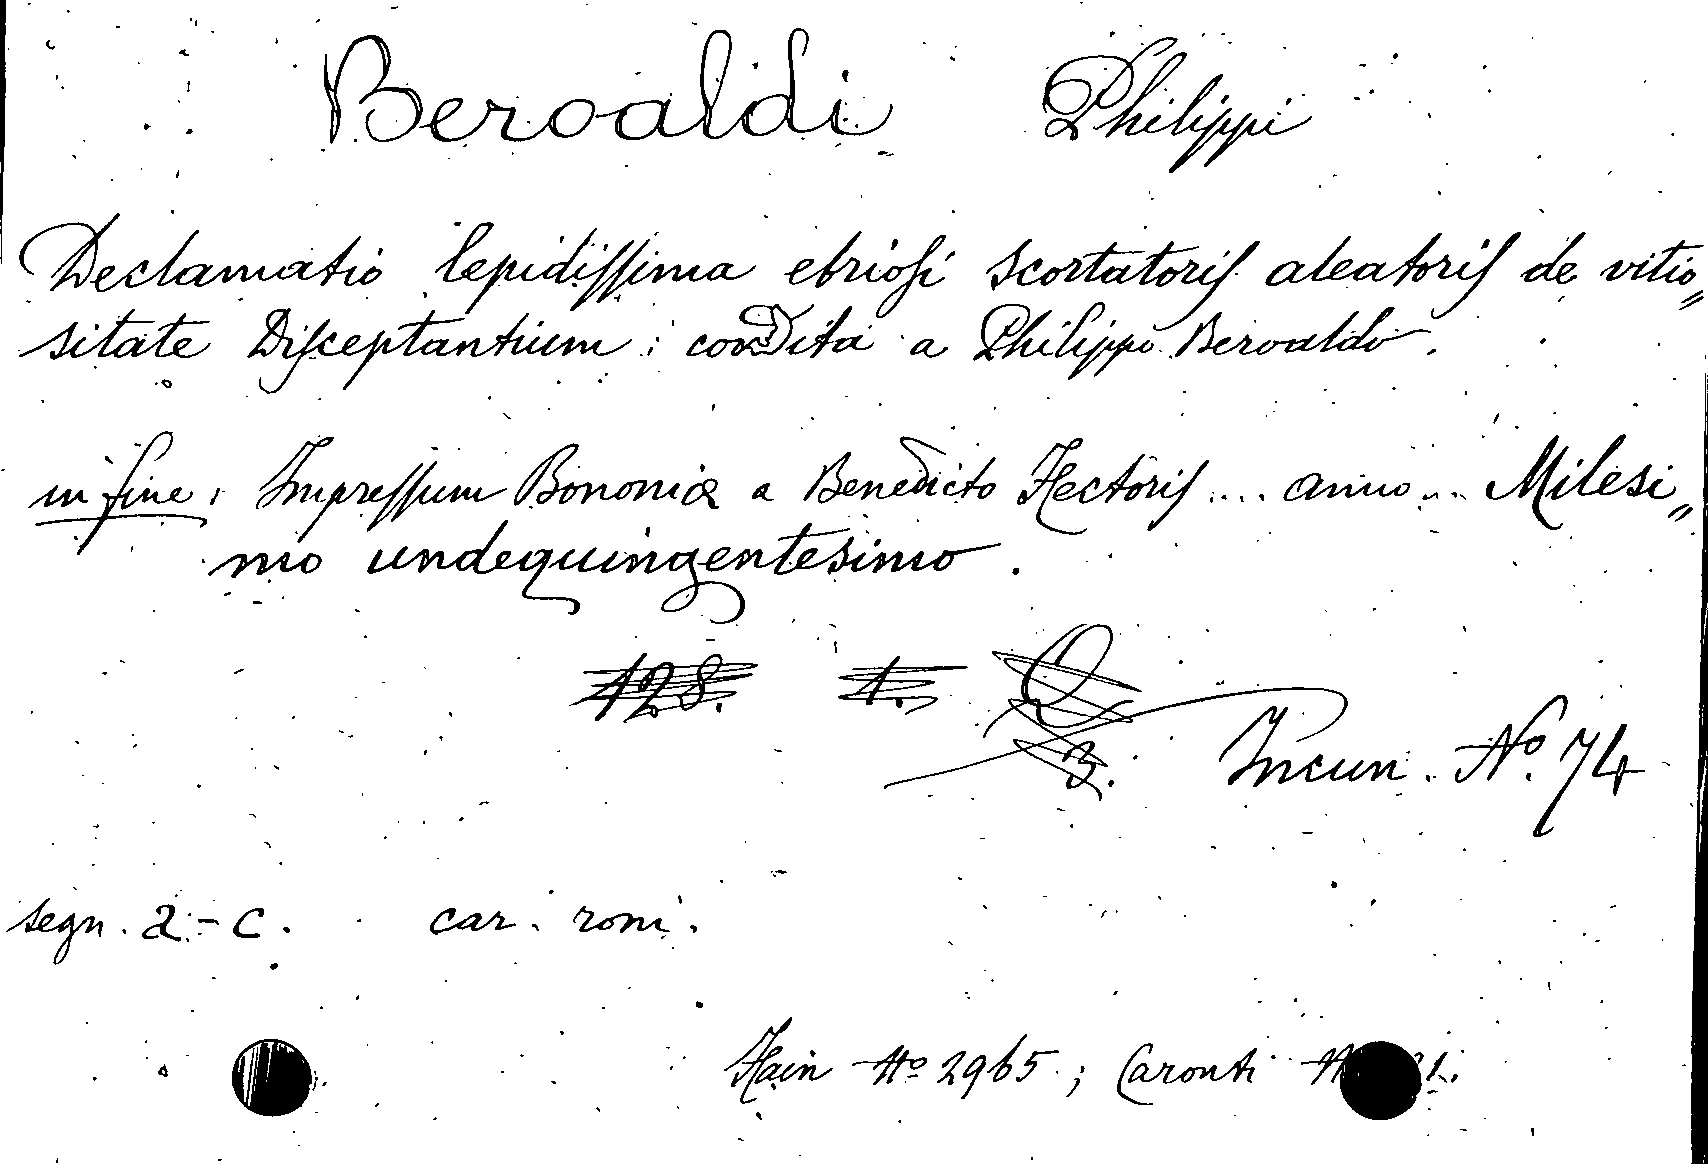 Beroaldi Philippi
Declamatio lepidiſſima ebrioſi scortatoriſ aleatoriſ de vitio„
sitate Diſceptantium : condita a Philippo Beroaldo.
in fine : Impreſſum Bononiæ a Benedicto Hectoriſ .... anno ... Milesi„
mo undequingentesimo.
128. 1. Q
3. Incun. Nº. 74
segn. a - c. car. rom.
Hain Nº 2965 ; Caronti